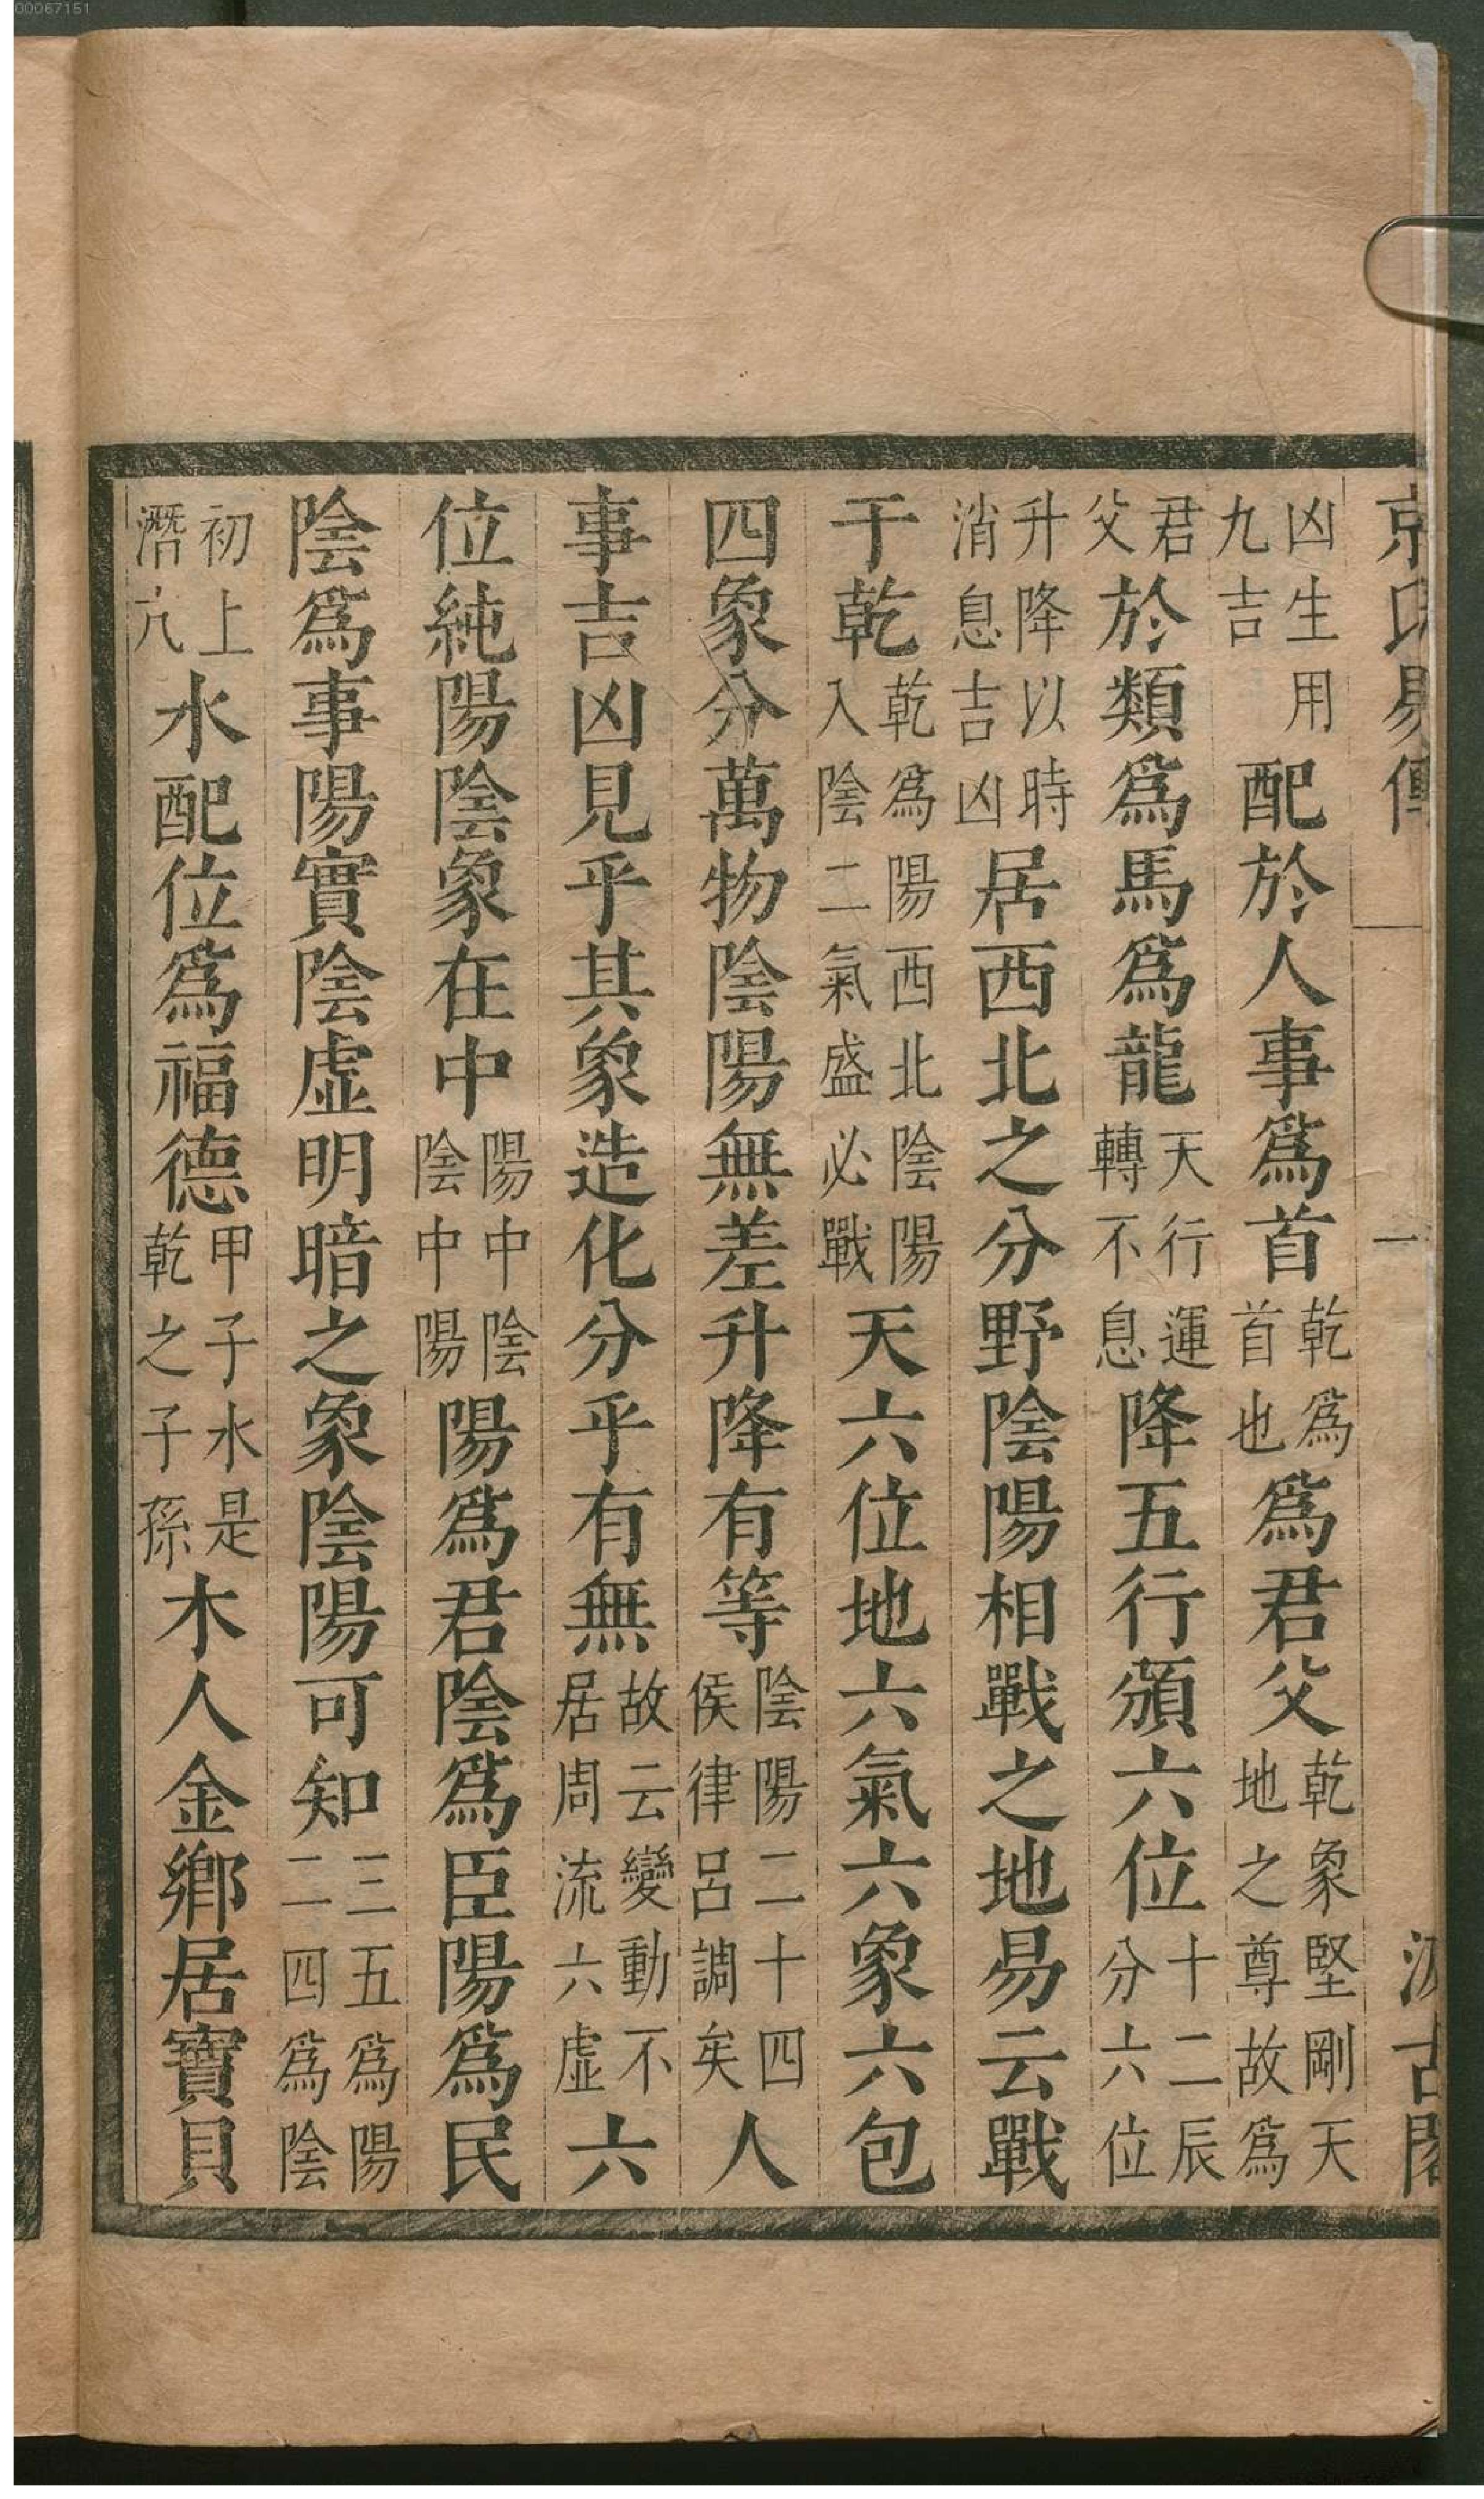 00067151
京氏易傳 一 汲古閣
凶生用九吉配於人事爲首乾爲首也爲君父乾象堅剛天地之尊故爲
君父於類爲馬爲龍天行運轉不息降五行頒六位十二辰分六位
升降以時消息吉凶居西北之分野陰陽相戰之地易云戰
于乾乾爲陽西北陰陽入陰二氣盛必戰天六位地六氣六象六包
四象分萬物陰陽無差升降有等陰陽二十四侯律呂調矣人
事吉凶見乎其象造化分乎有無故云變動不居周流六虛六
位純陽陰象在中陽中陰陰中陽陽爲君陰爲臣陽爲民
陰爲事陽實陰虛明暗之象陰陽可知三五爲陽二四爲陰
初上潛亢水配位爲福德甲子水是乾之子孫木人金鄉居寶貝